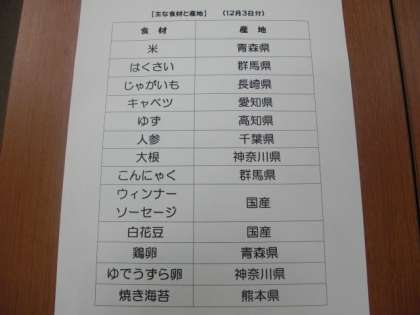 【主な食材と産地】　（12月3日分）
食　材　産　地
米　青森県
はくさい　群馬県
じゃがいも　長崎県
キャベツ　愛知県
ゆず　高知県
人参　千葉県
大根　神奈川県
こんにゃく　群馬県
ウィンナー
ソーセージ　国産
白花豆　国産
鶏卵　青森県
ゆでうずら卵　神奈川県
焼き海苔　熊本県